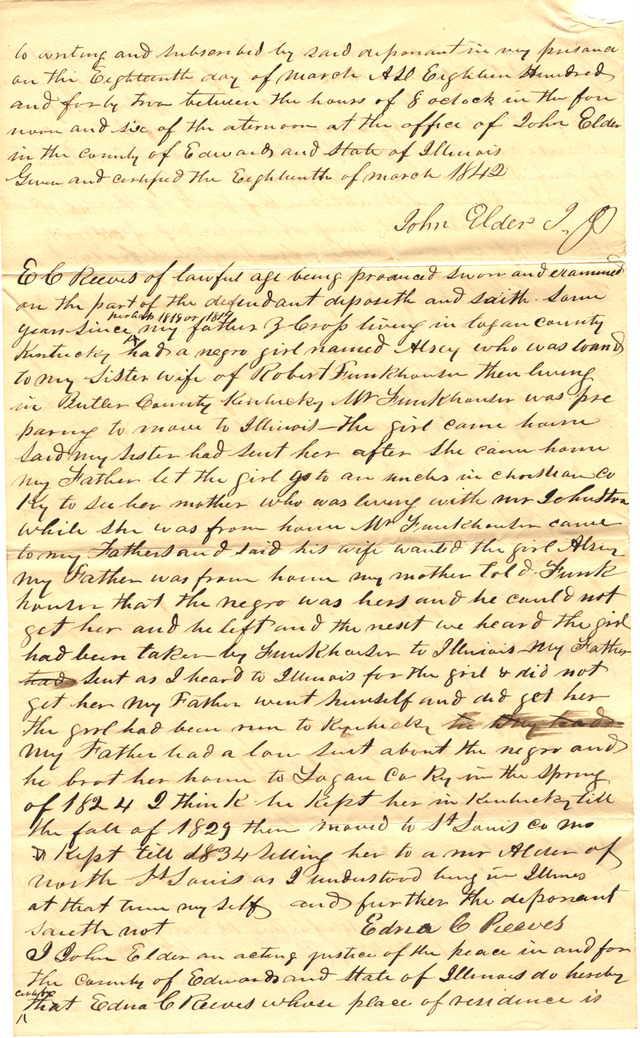 to writing and subscribed by said deponant in my presence
on the Eighteenth day of march AD Eighteen Hundred
and forty two between the hours of 8 oclock in the fore
noon and six of the aternoon at the office of John Elder
in the county of Edwards and State of Illinois
Given and certified the Eighteenth of march 1842
John Elder J. P
E C Reeves of lawful age being produced sworn and examined
on the part of the defendant deposeth and saith some
years since perhaps 1818 or 1819 my father Z Crop living in logan county
Kentucky had a negro girl named Alsey who was loand
to my Sister wife of Robert Funkhouser then living
in Butler County Kentucky Mr Funkhouser was pre
paring to move to Illinois – the girl came home
said my sister had sent her after she came home
my Father let the girl go to an uncles in christian co
Ky to see her mother who was living with mr Johnston
while she was from home Mr Funkhouser came
to my Fathers and said his wife wanted the girl Alsey
my Father was from home my mother told Funk
houser that the negro was hers and he could not
get her and he left and the next we heard the girl
had been taken by Funkhouser to Illinois – My Father
had sent as I heard to Illinois for the girl & did not
get her my Father went himself and did get her
the girl had been run to Kentucky
My Father had a law suit about the negro and
he brot her home to Logan Co Ky in the spring
of 1824 I think he kept her in Kentucky till
the fall of 1829 then moved to St Louis co mo
& Kept till 1834 selling her to a mr Alder of
north St Louis as I understood being in Illinois
at that time my self and further the deponant
saith not Edna C Reeves
I John Elder an acting justice of the peace in and for
the county of Edwards and State of Illinois do hereby
certify that Edna C Reeves whose place of residence is